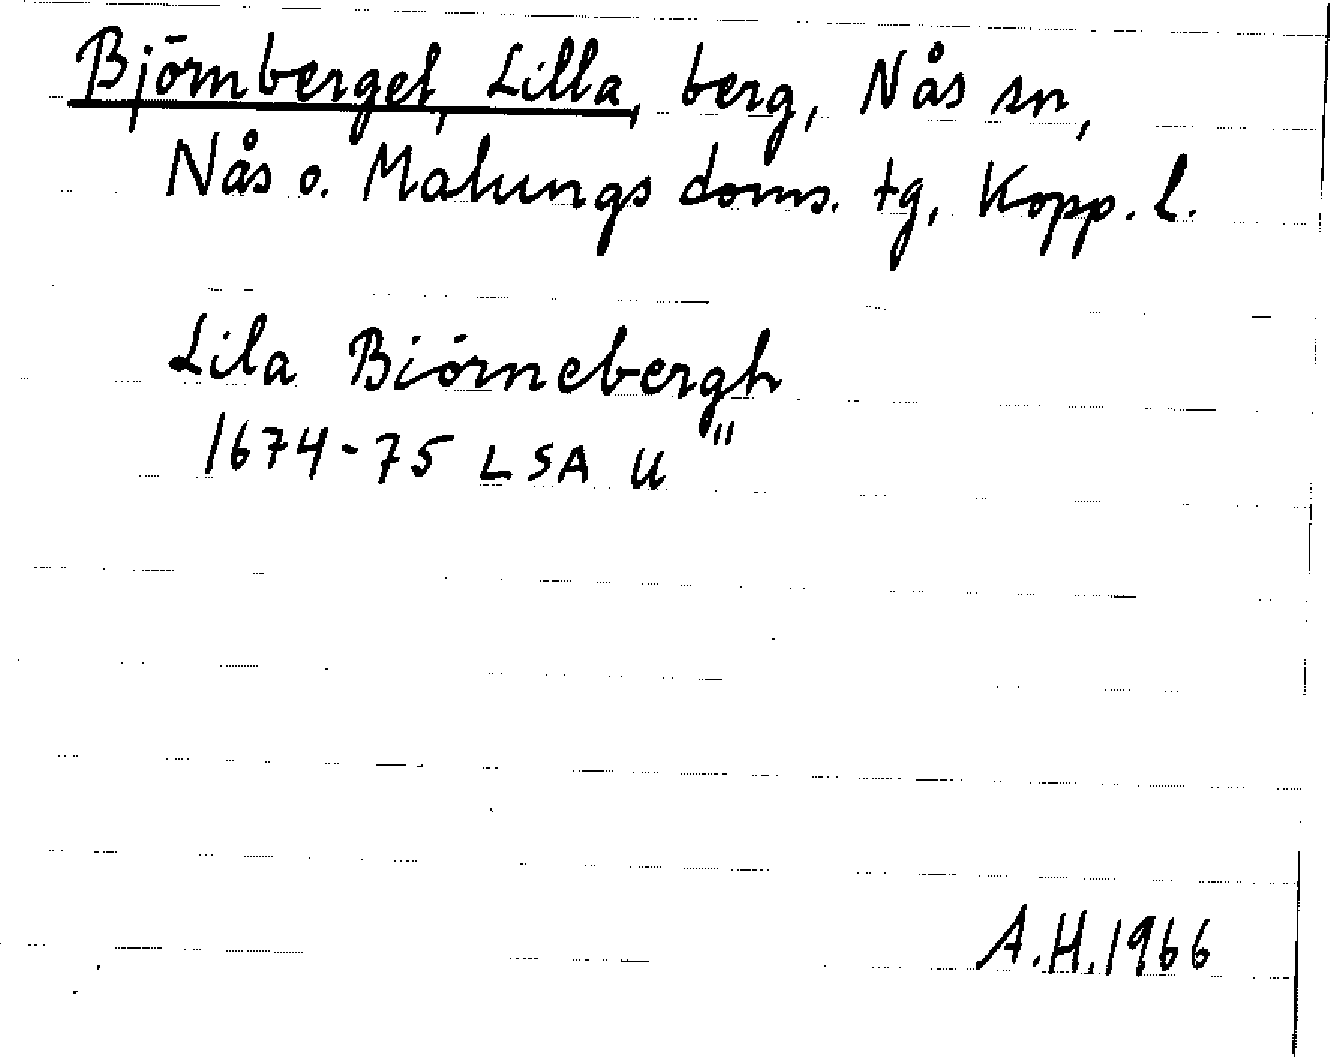 Björnberget, Lilla, berg, Nås sn,
Nås o. Malungs doms. tg, Kopp. l.
Lila Biörnebergh
1674-75 LSA U"
A.H. 1966